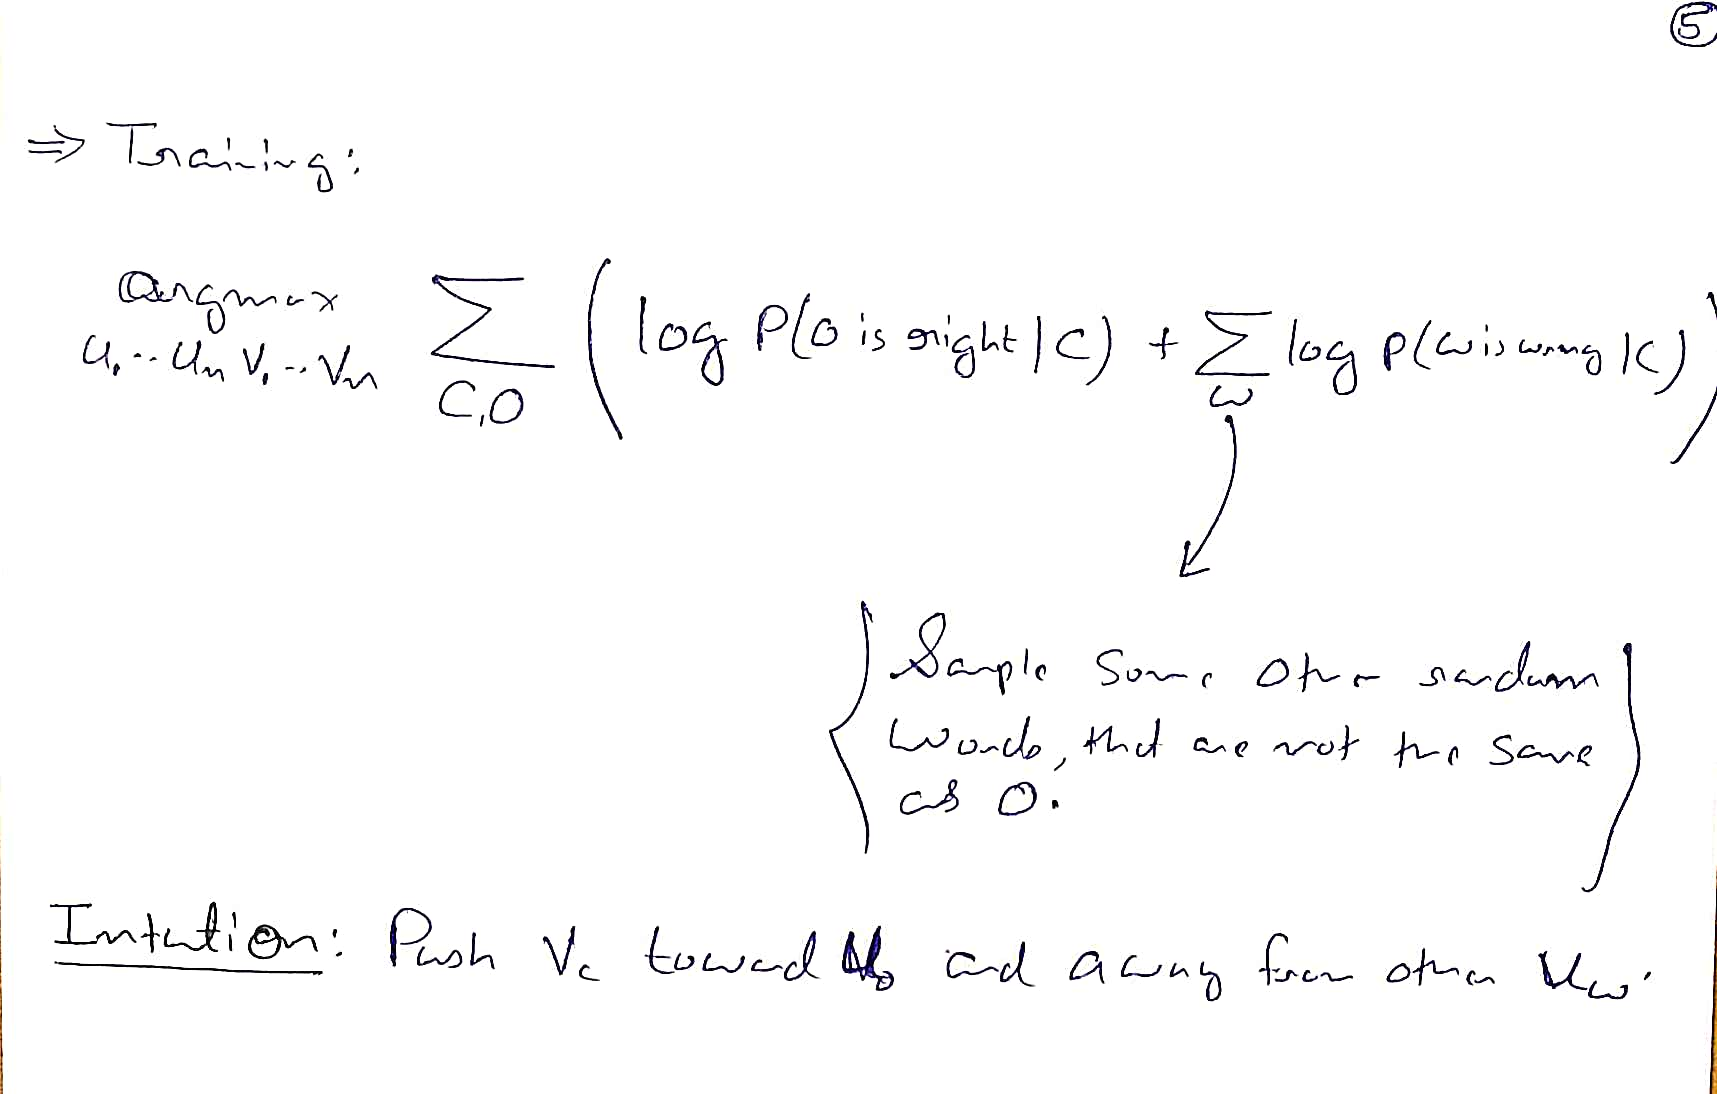 ⑤
⇒ Training:
argmax Σ ( log P(O is right | C) + Σ log P(w is wrong | C) )
U₁ ·· Uₙ V₁ ·· Vₙ C,O w
{ Sample some other random }
words, that are not the same
as O.
Intution: Push Vc toward Uo and away from other Uw.